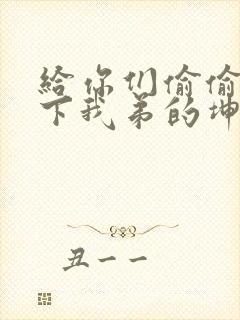 給你们偷偷
下我弟的坤
丑一一